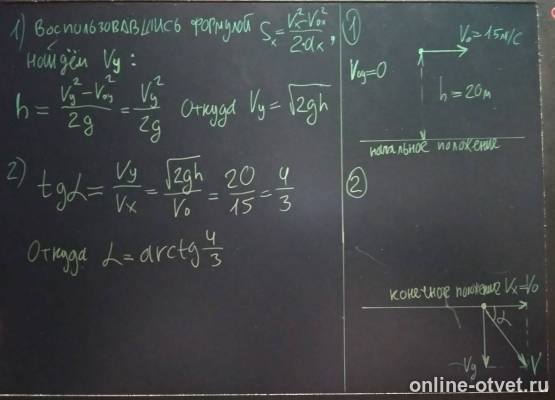 1) Воспользовавшись формулой Sₓ = (Vₓ² − V₀ₓ²)/(2·aₓ),
найдём Vy:
h = (Vy² − V₀y²)/(2g) = Vy²/(2g) Откуда Vy = √(2gh)
2) tgα = Vy/Vx = √(2gh)/V₀ = 20/15 = 4/3
Откуда α = arctg 4/3
①
V₀ = 15 м/с
V₀y = 0
h = 20 м
начальное положение
②
конечное положение Vx = V₀
α
Vy
V
online-otvet.ru